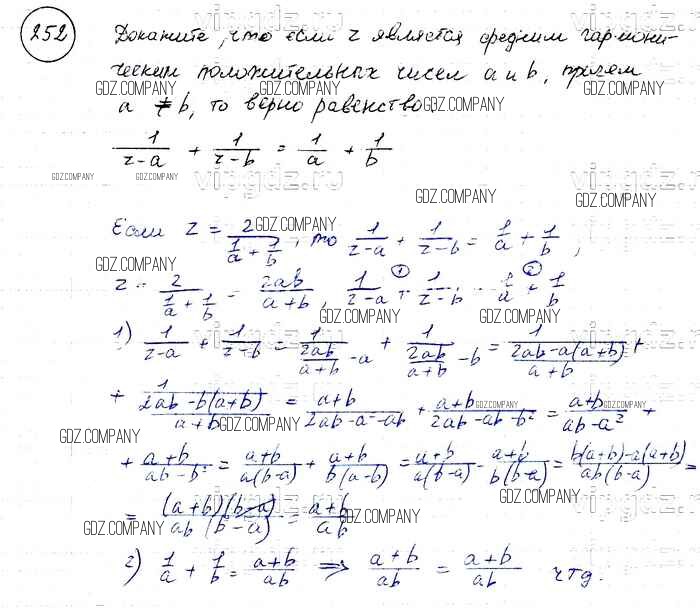 252 Докажите, что если z является средним гармони-
ческим положительных чисел a и b, причем
a ≠ b, то верно равенство:
1/(z-a) + 1/(z-b) = 1/a + 1/b
Если z = 2/(1/a + 1/b), то 1/(z-a) + 1/(z-b) = 1/a + 1/b,
z = 2/(1/a + 1/b) = 2ab/(a+b), 1/(z-a) + 1/(z-b) = 1/a + 1/b
1) 1/(z-a) + 1/(z-b) = 1/(2ab/(a+b) - a) + 1/(2ab/(a+b) - b) = 1/((2ab-a(a+b))/(a+b)) +
+ 1/((2ab-b(a+b))/(a+b)) = (a+b)/(2ab-a²-ab) + (a+b)/(2ab-ab-b²) = (a+b)/(ab-a²) +
+ (a+b)/(ab-b²) = (a+b)/(a(b-a)) + (a+b)/(b(a-b)) = (a+b)/(a(b-a)) - (a+b)/(b(b-a)) = (b(a+b)-a(a+b))/(ab(b-a)) =
= (a+b)(b-a)/(ab(b-a)) = (a+b)/(ab)
2) 1/a + 1/b = (a+b)/(ab) ⇒ (a+b)/(ab) = (a+b)/(ab) чтд.
GDZ.COMPANY
vipgdz.ru